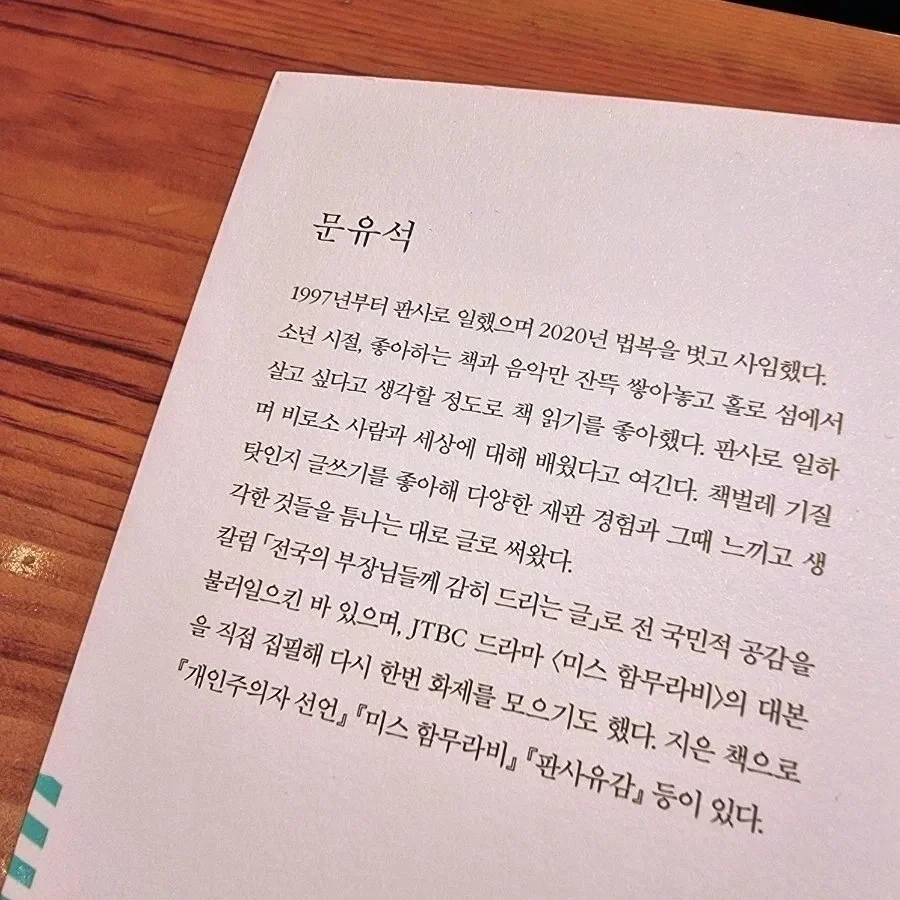 문유석
1997년부터 판사로 일했으며 2020년 법복을 벗고 사임했다.
소년 시절, 좋아하는 책과 음악만 잔뜩 쌓아놓고 홀로 섬에서
살고 싶다고 생각할 정도로 책 읽기를 좋아했다. 판사로 일하
며 비로소 사람과 세상에 대해 배웠다고 여긴다. 책벌레 기질
탓인지 글쓰기를 좋아해 다양한 재판 경험과 그때 느끼고 생
각한 것들을 틈나는 대로 글로 써왔다.
칼럼 「전국의 부장님들께 감히 드리는 글」로 전 국민적 공감을
불러일으킨 바 있으며, JTBC 드라마 〈미스 함무라비〉의 대본
을 직접 집필해 다시 한번 화제를 모으기도 했다. 지은 책으로
『개인주의자 선언』 『미스 함무라비』 『판사유감』 등이 있다.